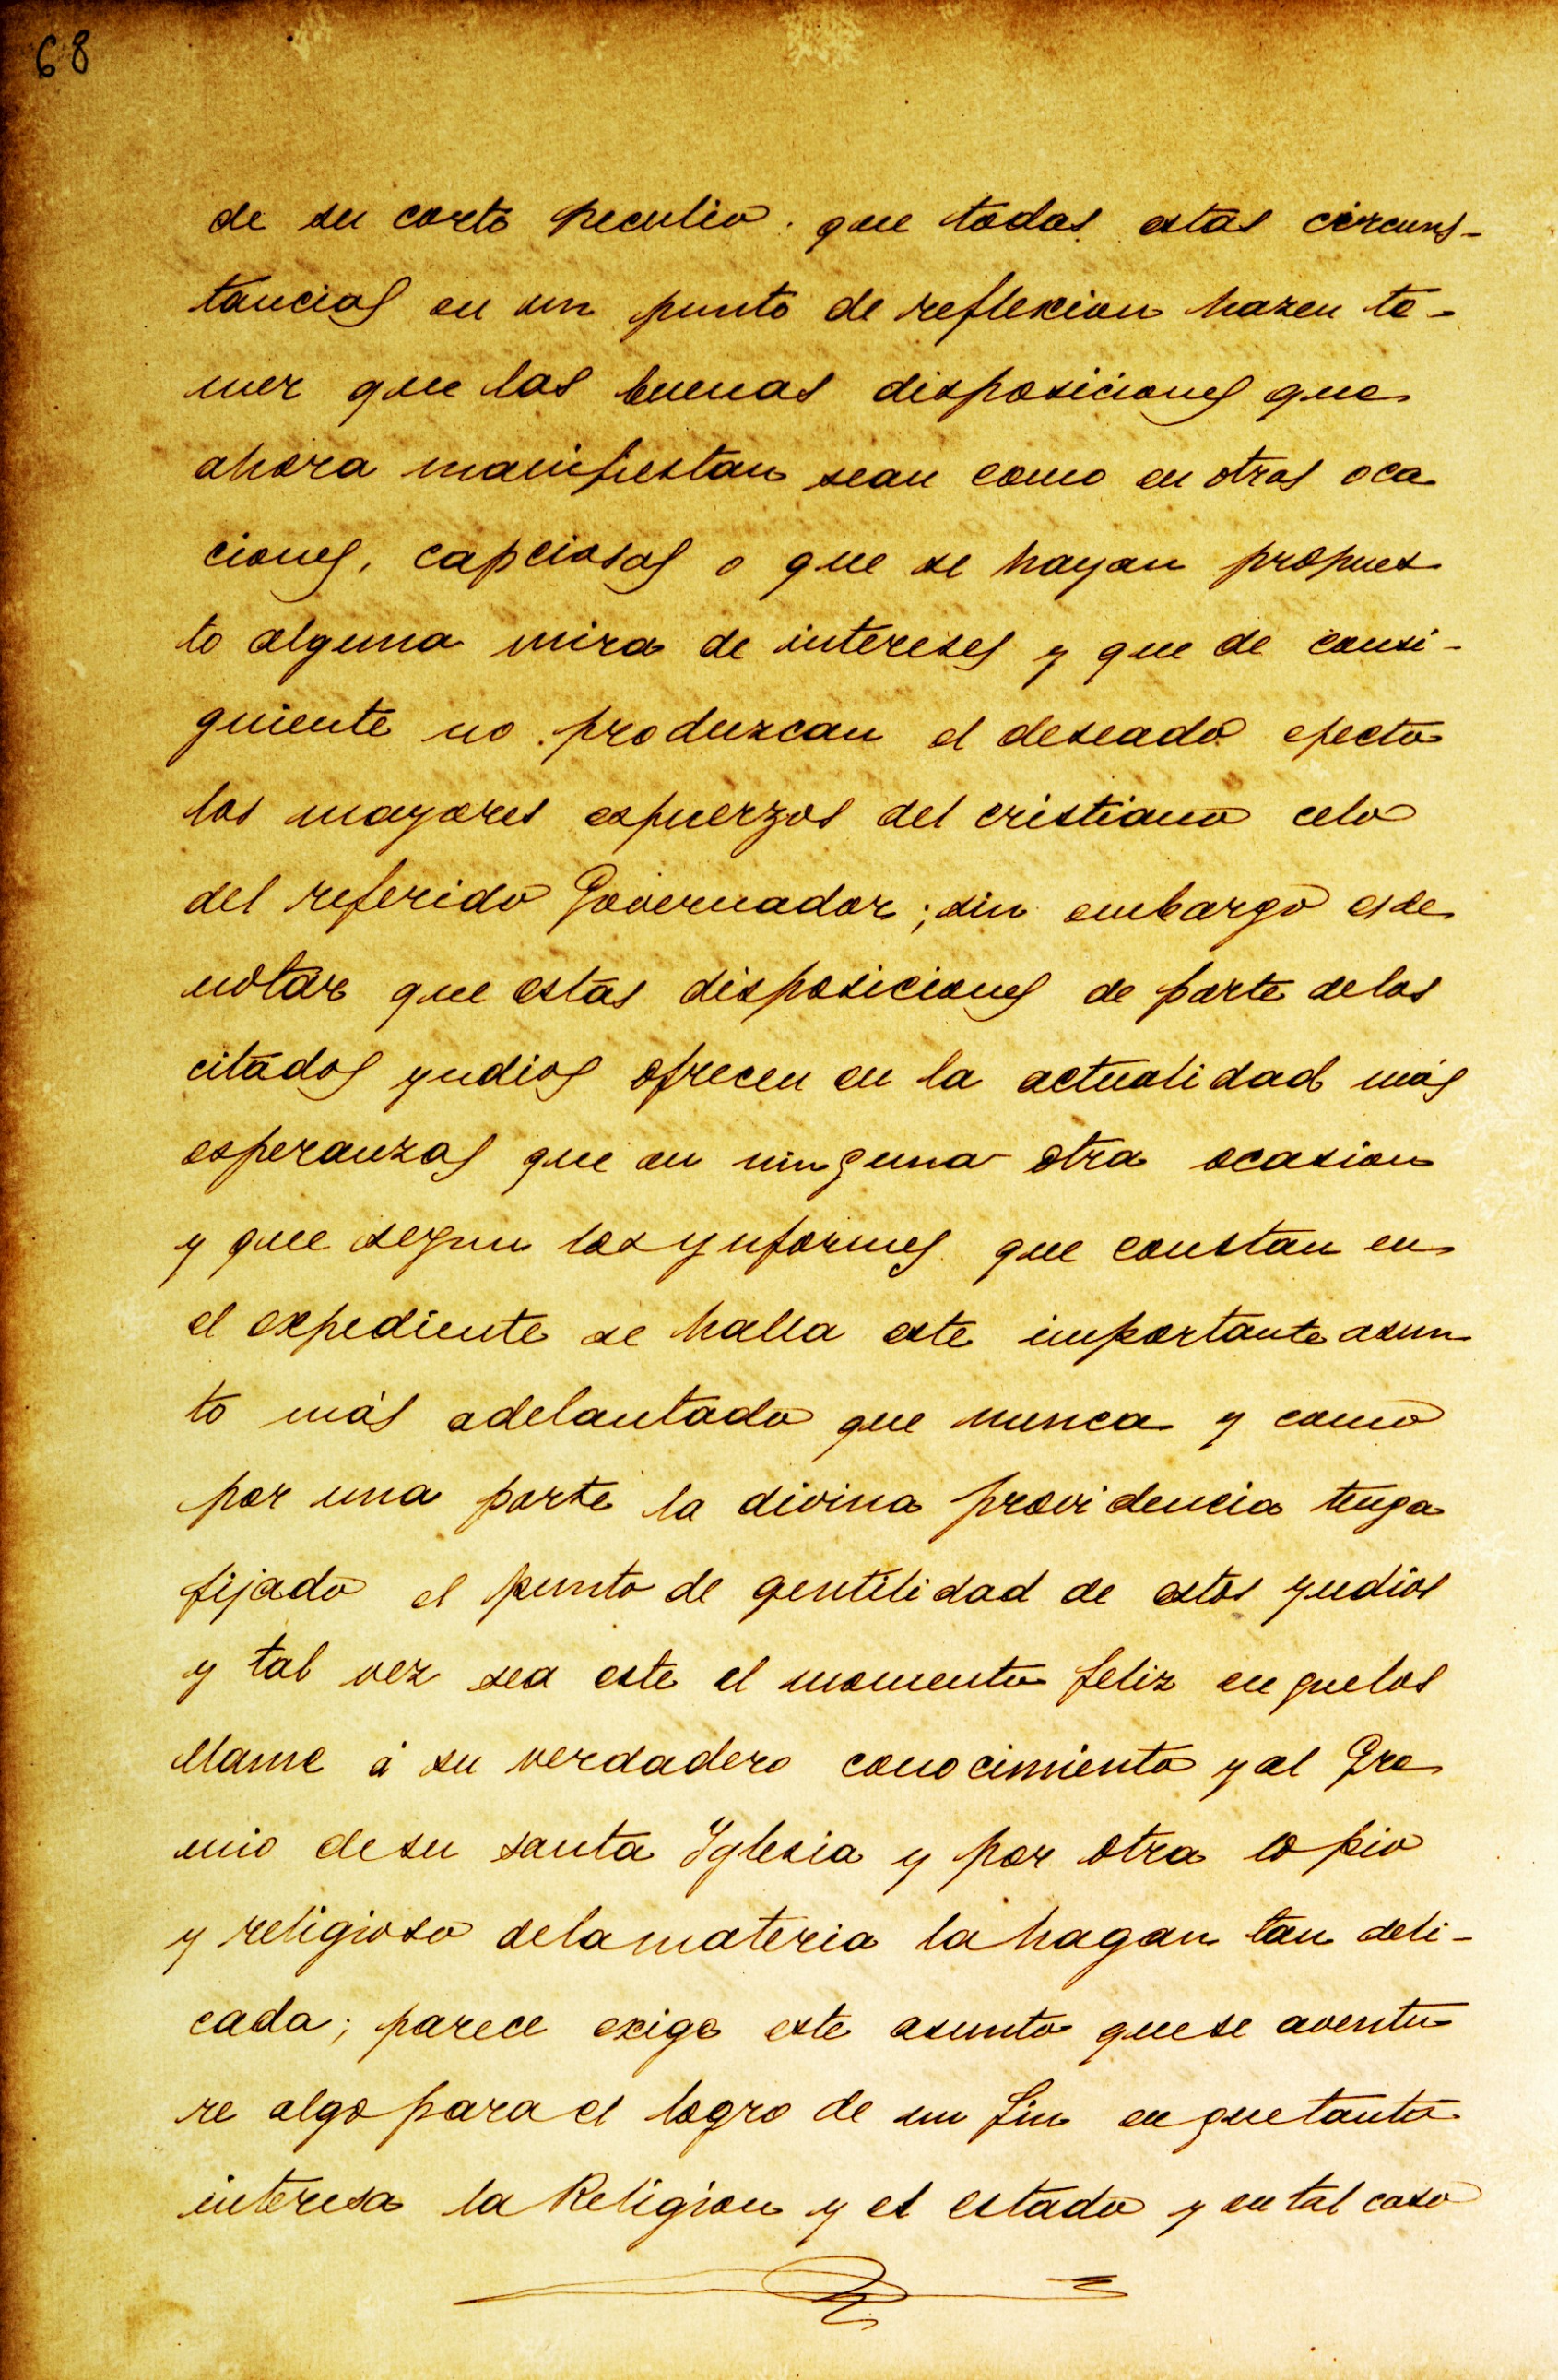 68
de su corto peculio. que todas estas circuns-
tancias en un punto de reflexion hazen te-
mer que las buenas disposiciones que
ahora manifiestan sean como en otras oca
ciones, capciosas o que se hayan propues
to alguna mira de intereses y que de consi-
guiente no produzcan el deseado efecto
los mayores esfuerzos del cristiano celo
del referido Governador; sin embargo es de
notar que estas disposiciones de parte delos
citados yndios ofrecen en la actualidad más
esperanzas que en ninguna otra ocasion
y que segun los ynformes que constan en
el expediente se halla este importante asun
to más adelantado que nunca y como
por una parte la divina providencia tenga
fijado el punto de gentilidad de estos yndios
y tal vez sea este el momento feliz en quelos
llame á su verdadero conocimiento y al Gre
mio desu santa Yglesia y por otra lo pio
y religioso delamateria la hagan tan deli-
cada; parece exige este asunto quese aventu
re algo para el logro de un fin en que tanto
interesa la Religion y el estado y en tal caso